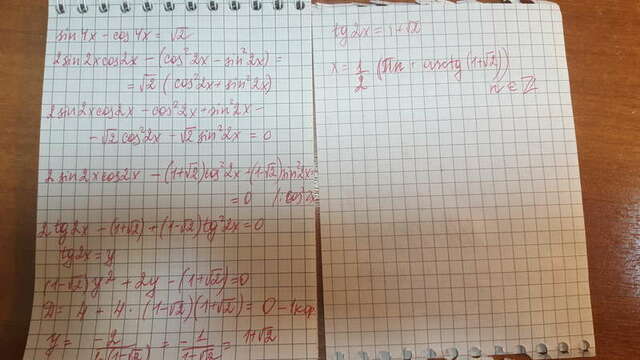 sin4x - cos4x = √2
2sin2xcos2x - (cos²2x - sin²2x) =
= √2 (cos²2x + sin²2x)
2sin2xcos2x - cos²2x + sin²2x -
- √2cos²2x - √2sin²2x = 0
2sin2xcos2x - (1+√2)cos²2x + (1-√2)sin²2x =
= 0 /: cos²2x
2tg2x - (1+√2) + (1-√2)tg²2x = 0
tg2x = y
(1-√2)y² + 2y - (1+√2) = 0
D = 4 + 4 · (1-√2)(1+√2) = 0 - 1 кор
y = -2/2(1-√2) = -1/1-√2 = 1+√2
tg2x = 1+√2
x = 1/2 (πn + arctg(1+√2))
n ∈ Z